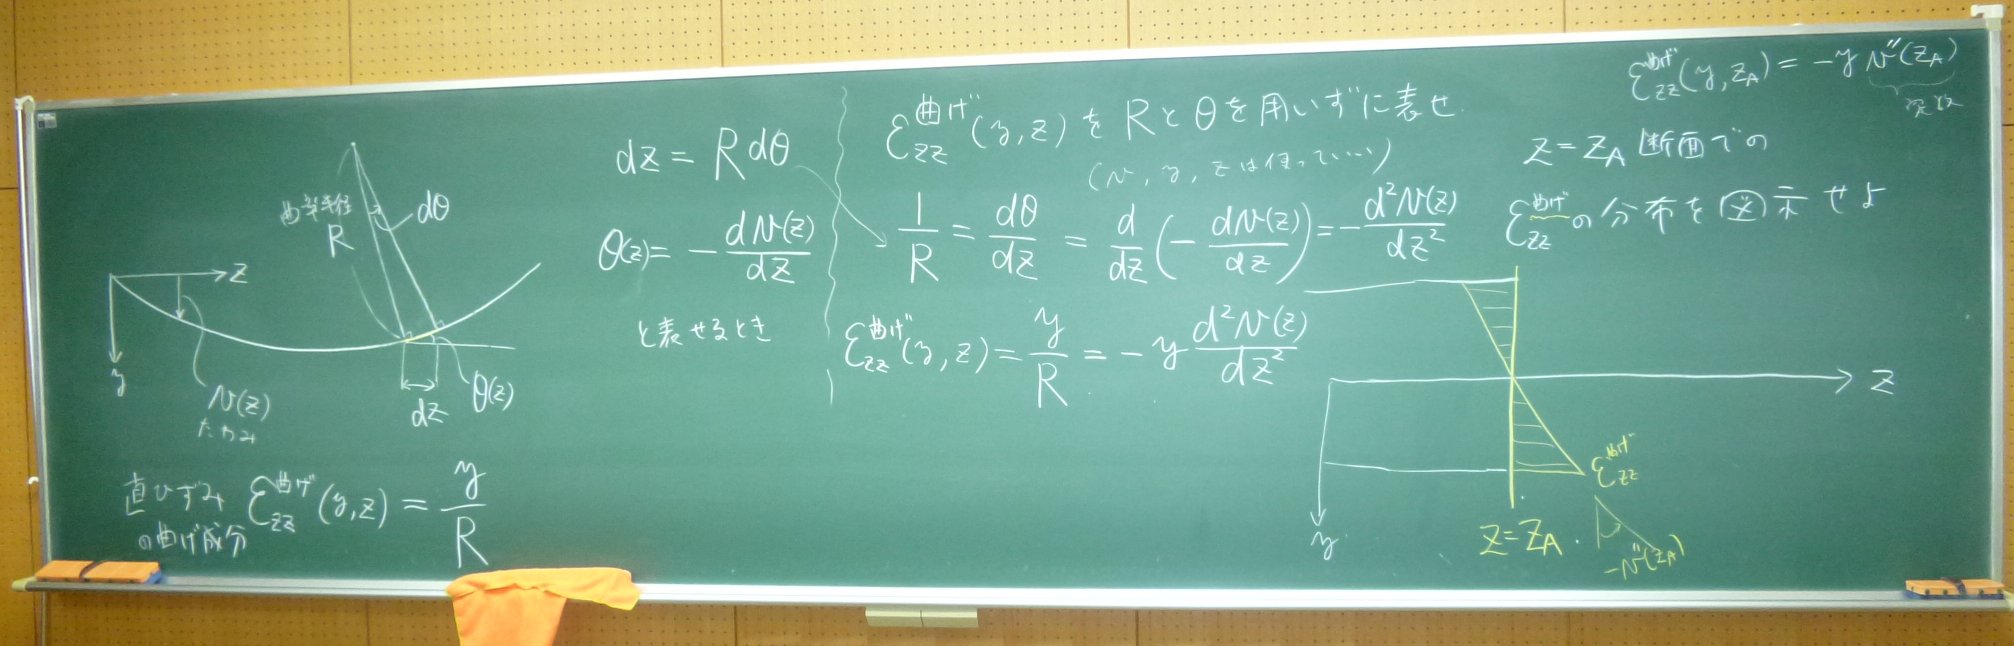 曲率半径
R
dθ
z
y
v(z)
たわみ
dz
θ(z)
直ひずみ
の曲げ成分
ε_zz^曲げ(y,z) = y/R
dz = R dθ
θ(z) = - dv(z)/dz
と表せるとき
ε_zz^曲げ(y,z) を Rとθを用いずに表せ.
(v, y, z は使っていい)
1/R = dθ/dz = d/dz (- dv(z)/dz) = - d²v(z)/dz²
ε_zz^曲げ(y,z) = y/R = - y d²v(z)/dz²
ε_zz^曲げ(y,z_A) = -y v''(z_A)
z=z_A 断面での
ε_zz^曲げ の分布を図示せよ
z
y
ε_zz^曲げ
z=z_A
-v''(z_A)